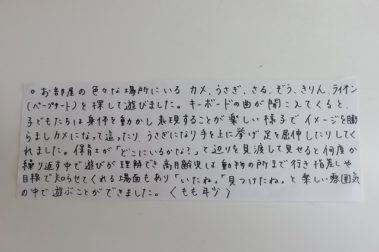 ○お部屋の色々な場所にいるカメ、うさぎ、さる、ぞう、きりん、ライオン
(ペープサート)を探して遊びました。キーボードの曲が聞こえてくると、
子どもたちは身体を動かし表現することが楽しい様子でイメージを膨
らましカメになって這ったり、うさぎになり手を上に挙げ足を屈伸したりしてく
れました。保育士が「どこにいるかな?」と辺りを見渡して見せると何度か
繰り返す中で遊びが理解でき高月齢児は動物の所まで行き指差しや
目線で知らせてくれる場面もあり「いたね」「見つけたね」と楽しい雰囲気
の中で遊ぶことができました。(もも